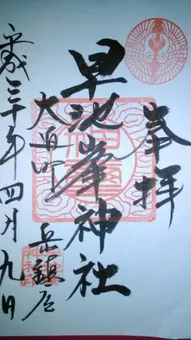 奉拝
早池峯神社
大迫町 岳鎮座
平成三十年四月九日